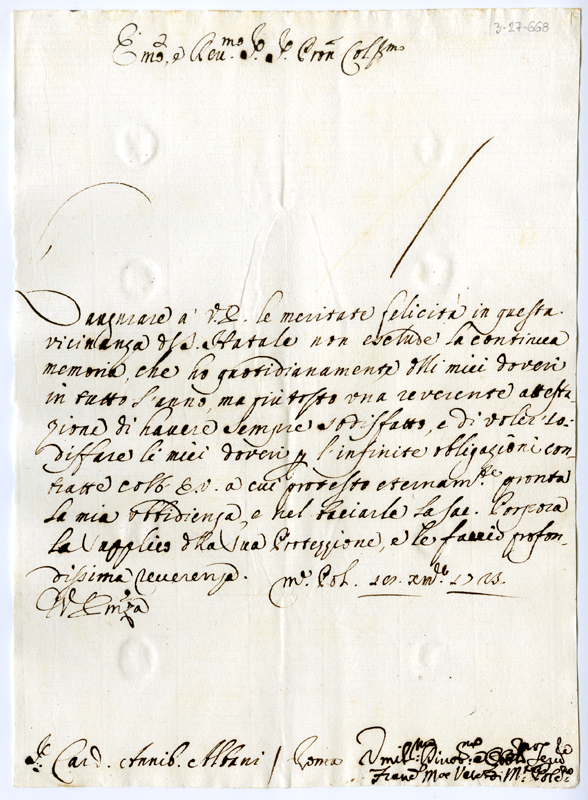 3-27-668
Em.º, e Reu.mo Sig.r Sig.r Pron Col.mo
L'augurare a' V.E. le meritate felicità in questa
vicinanza del S. Natale non esclude la continua
memoria, che ho quotidianamente delli miei doveri
in tutto l'anno, ma più tosto una reverente attesta
zione di havere sempre sodisfatto, e di voler so-
disfare li miei doveri p l'infinite obligazioni con-
tratte coll' E.V. a cui protesto eternam.te pronta
la mia obbidienza, e nel baciarle la Sac. Porpora
la supplico della sua Protezzione, e le faccio profon-
dissima reverenza.
D. V. Emza
S.r Card. Annib. Albani / Roma
Umil.mo Divot.mo